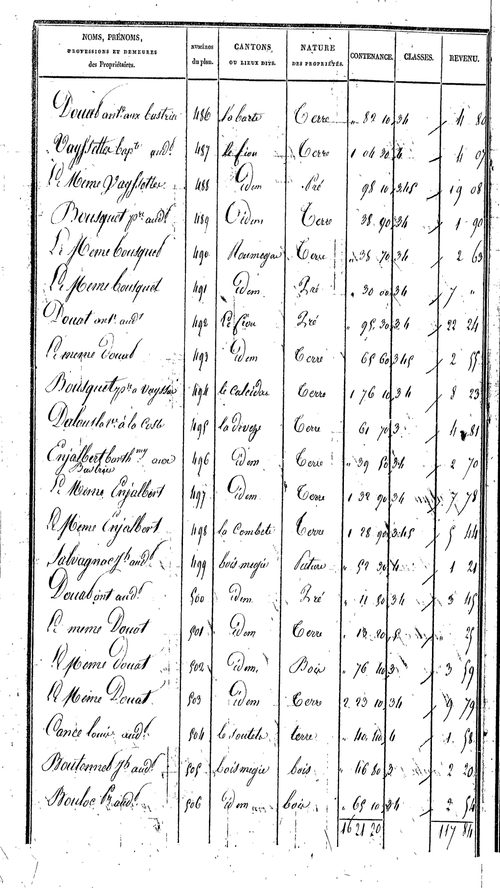 NOMS, PRÉNOMS, PROFESSIONS ET DEMEURES des Propriétaires. NUMÉROS du plan. CANTONS OU LIEUX DITS. NATURE DES PROPRIÉTÉS. CONTENANCE. CLASSES. REVENU.
Douat ant.ne aux bastries 486 Terre " 82 10 34 4 80
Vayssettes bap.te aud.t 487 le fiou Terre 1 04 30 4 4 07
Le Meme Vayssettes 488 Idem Pré 98 10 345 19 08
Bousquet p.re aud.t 489 Idem Terre 38 90 34 1 90
Le Meme bousquet 490 Terre " 38 70 34 2 63
Le Meme bousquet 491 idem Pré " 30 00 34 7 "
Douat ant.ne aud.t 492 le fiou Pré " 95 30 34 22 24
Le meme Douat 493 Idem Terre 65 60 345 2 55
Bousquet p.re a Vayssie 494 Terre 1 76 10 34 8 23
à la Coste 495 Terre 61 70 3 4 81
Enjalbert barth.my aux Bastries 496 idem Terre " 39 80 34 2 70
Le Meme Enjalbert 497 Idem Terre 1 32 90 34 7 78
Le Meme Enjalbert 498 la Combete Terre 1 28 90 345 5 44
Salvagnac aud.t 499 bois megie Pature " 52 30 4 1 21
Douat ant aud.t 500 idem Pré " 11 50 34 3 45
Le meme Douat 501 Idem Terre 25
Le Meme Douat 502 Idem Bois " 76 40 3 3 59
Le Meme Douat 503 Idem Terre 2 23 10 34 9 79
Cance louis aud.t 504 terre 1 58
Boutonnet aud.t 505 bois megie bois " 46 80 3 2 20
Bouloc aud.t 506 idem bois " 65 10 34 2 54
16 21 20 117 84